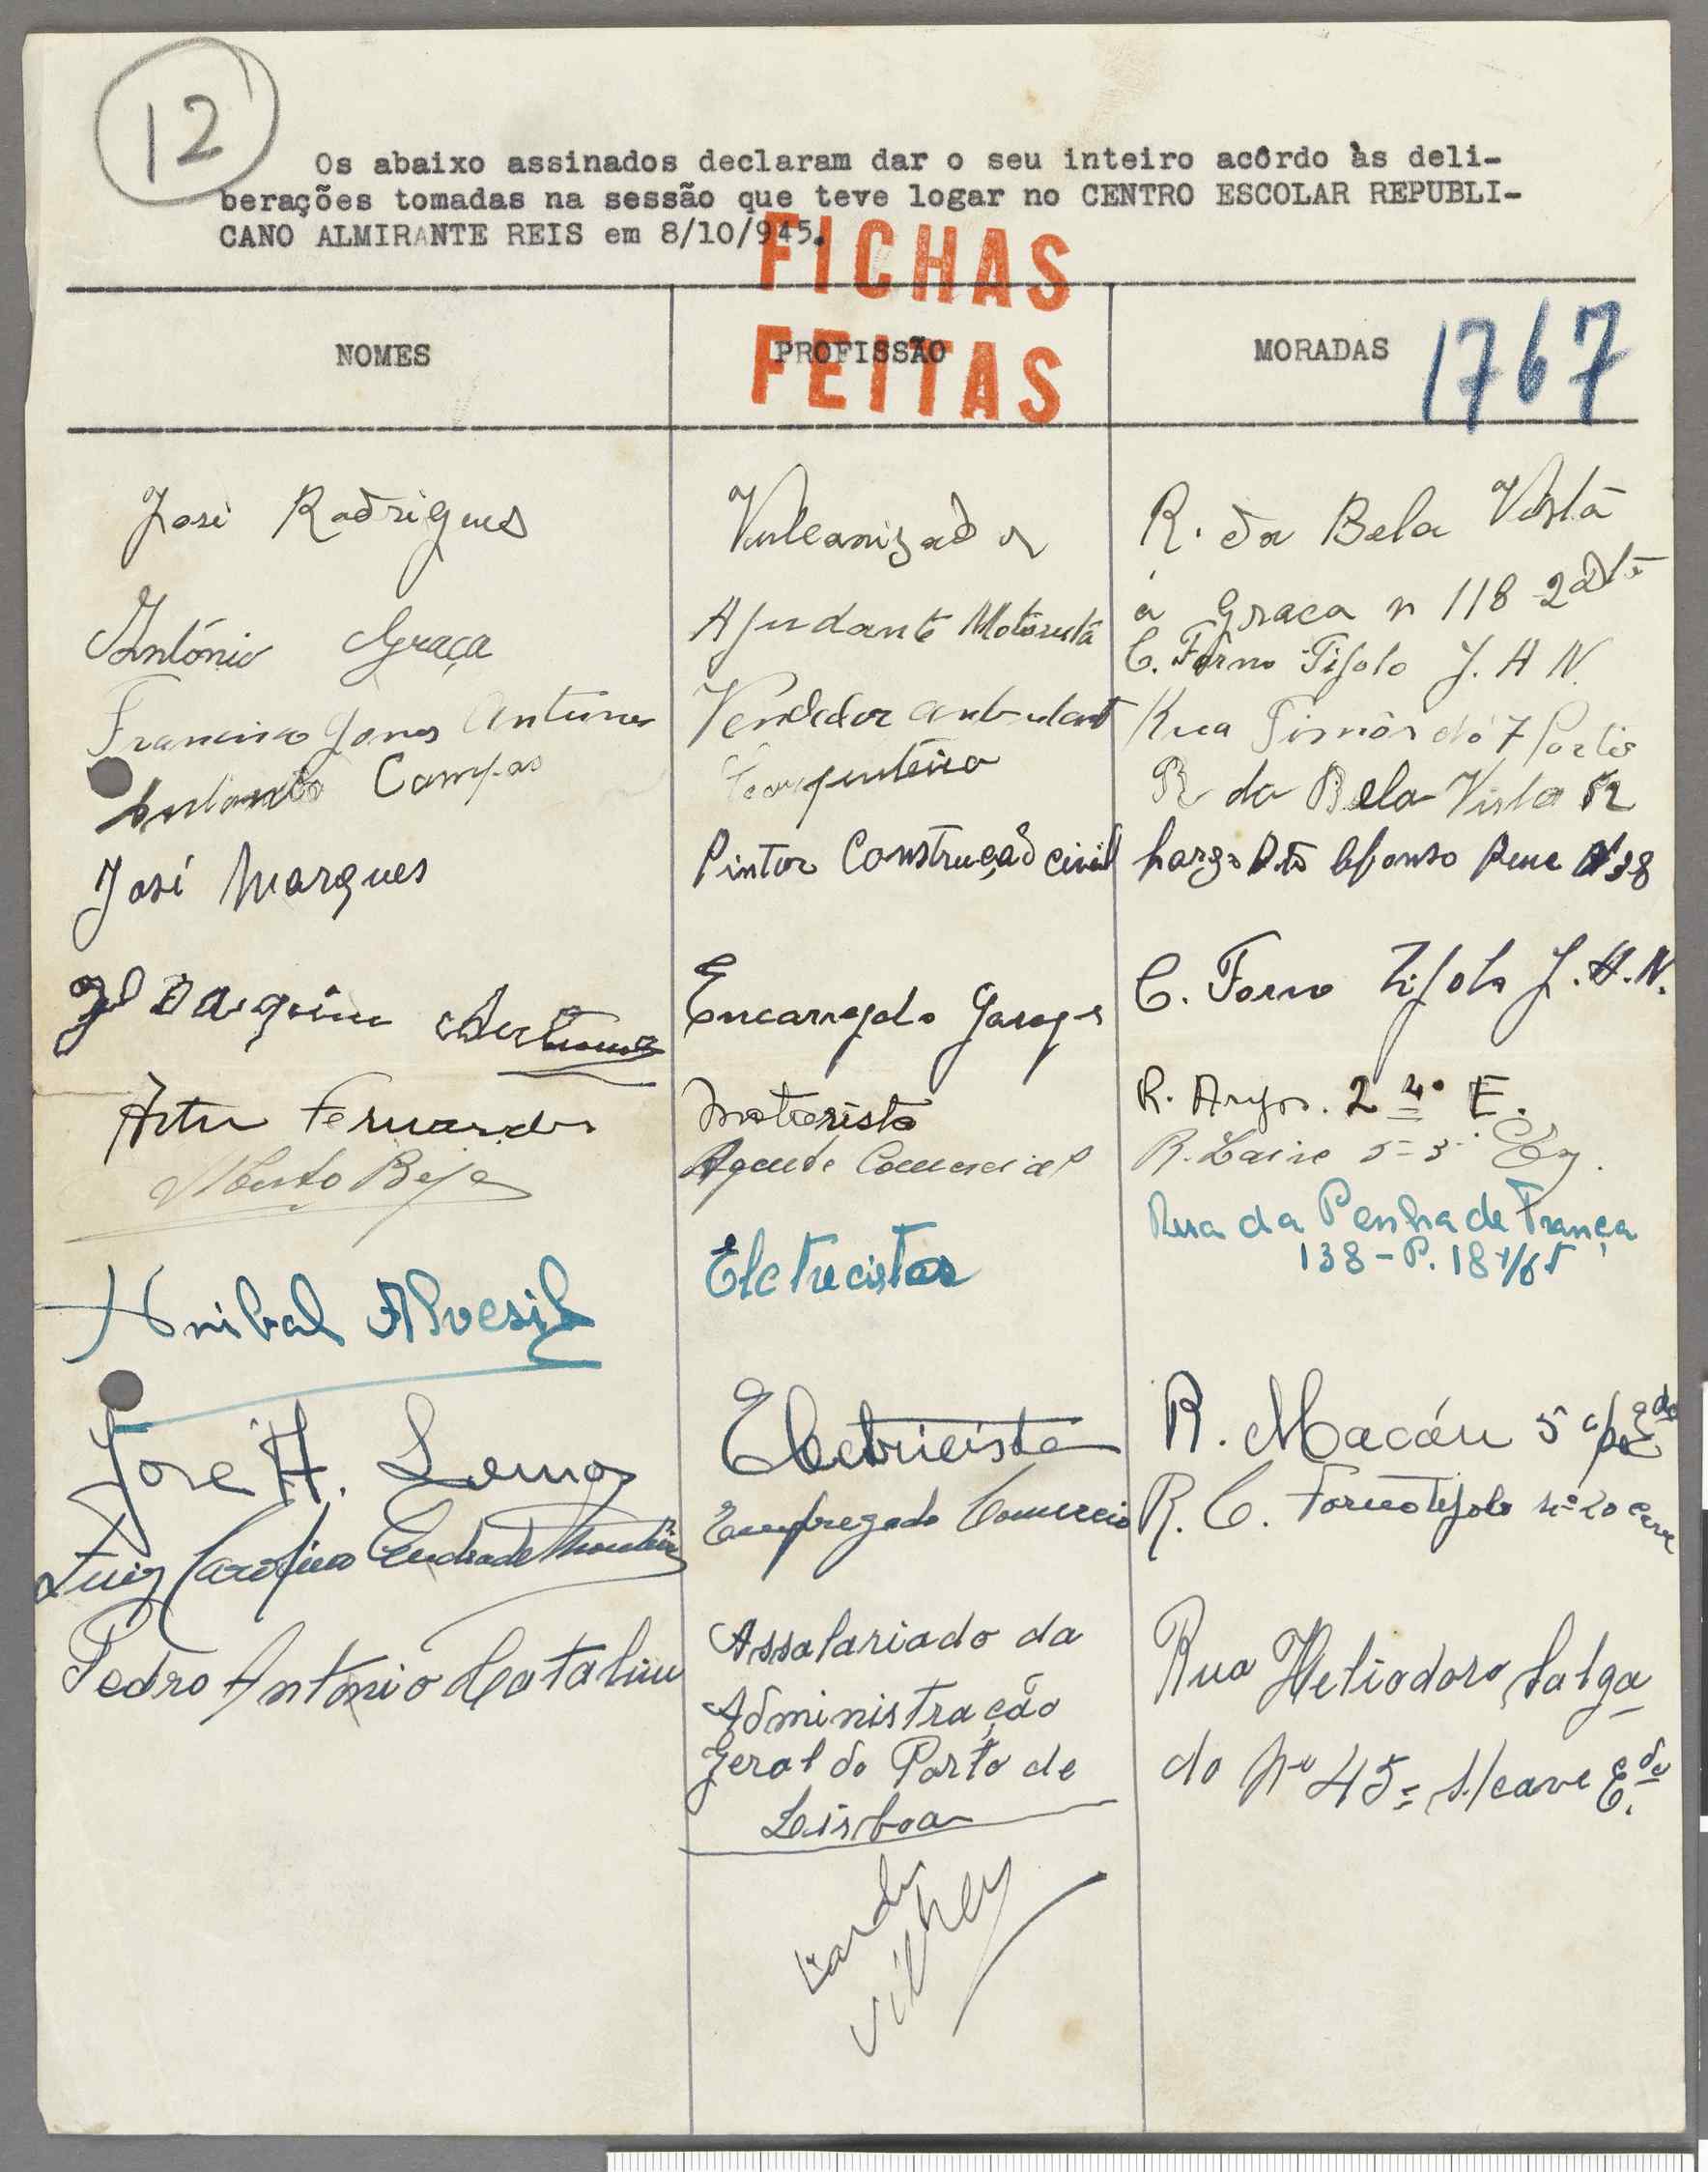 12
Os abaixo assinados declaram dar o seu inteiro acôrdo às deli-
berações tomadas na sessão que teve logar no CENTRO ESCOLAR REPUBLI-
CANO ALMIRANTE REIS em 8/10/945.
FICHAS
FEITAS
NOMES PROFISSÃO MORADAS 1767
José Rodrigues Vulcanizador R. da Bela Vista
á Graca n 118 2
António Graça Ajudante Motorista C. Forno Tijolo J. H N.
Francisco Antunes Vendedor Rua
António Campos Carpinteiro R da Bela Vista
José Marques Pintor Construção civil Largo
Joaquim Antunes Encarregado Garage C. Forno Tijolo J. H. N.
Artur Fernandes Motorista R. 2 4º E.
Beja Agente Comercial R.
Anibal Eletrecista Rua da Penha de França
138 - P. 18
José H. Lemos Electricista R. Macáu 5
Luiz Carolino Andrade Empregado Comercio R. C. Forno tijolo nº 20 cave
Pedro António Catalim Assalariado da
Administração
Geral do Porto de
Lisboa
Rua Heliodoro Salga
do Nº 45 = s/cave E.